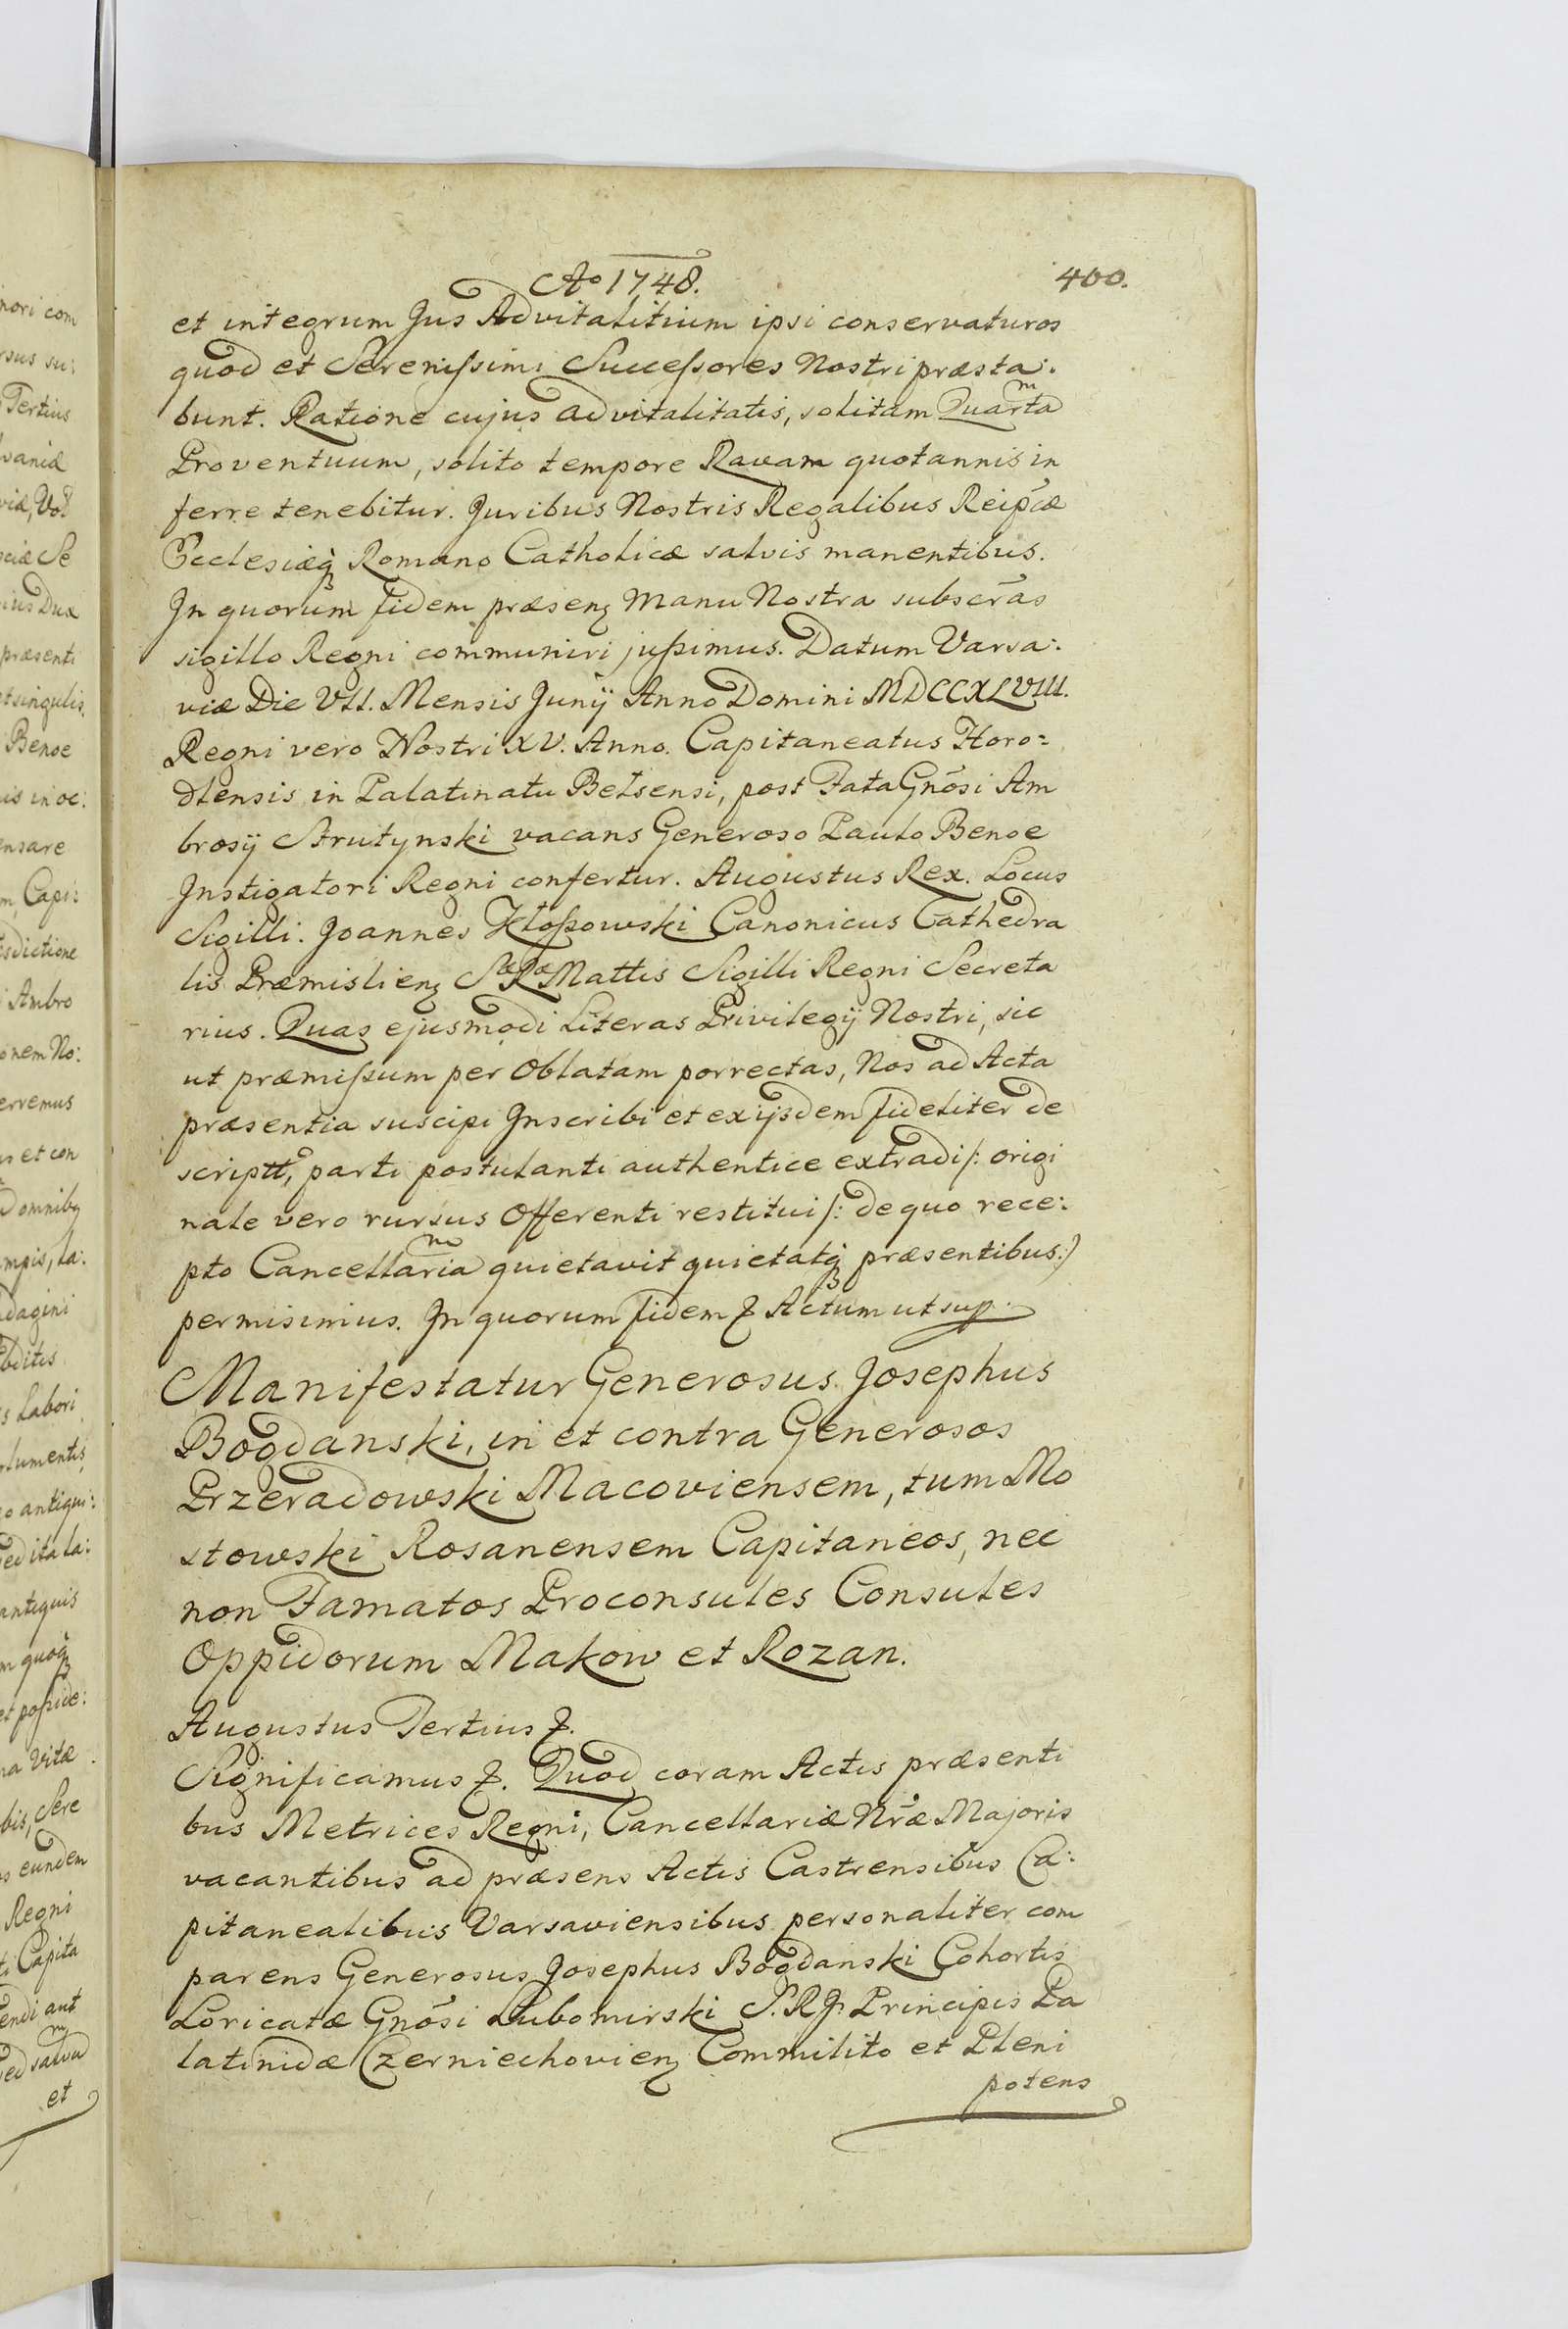 Ao 1748.
400.
et integrum Jus Advitalitium ipsi conservaturos
quod et Serenissimi Successores Nostri præsta:
bunt. Ratione cujus advitalitatis, solitam Quartam
Proventuum, solito tempore Ravam quotannis in
ferre tenebitur. Juribus Nostris Regalibus Reipcæ
Ecclesiæq Romano Catholicæ salvis manentibus.
In quorum fidem præsenz Manu Nostra subscras
sigillo Regni communiri jussimus. Datum Varsa:
viæ Die VII. Mensis Junij Anno Domini MDCCXLVIII.
Regni vero Nostri XV. Anno. Capitaneatus Horo=
dlensis in Palatinatu Belsensi, post Fata Gnosi Am
brosij Strutynski vacans Generoso Paulo Benoe
Instigatori Regni confertur. Augustus Rex. Locus
Sigilli. Joannes Kłossowski Canonicus Cathedra
lis Præmislienz Sæ Ræ Mattis Sigilli Regni Secreta
rius. Quas ejusmodi Literas Privilegij Nostri, sic
ut præmissum per Oblatam porrectas, Nos ad Acta
præsentia suscipi Inscribi et ex ijsdem fideliter de
scriptt, parti postulanti authentice extradi /: origi
nale vero rursus Offerenti restitui /: de quo rece:
pto Cancellariam quietavit quietatq præsentibus :)
permisimus. In quorum fidem & Actum ut sup.
Manifestatur Generosus Josephus
Bogdanski, in et contra Generosos
Przeradowski Macoviensem, tum Mo
stowski Rosanensem Capitaneos, nec
non Famatos Proconsules Consules
Oppidorum Makow et Rozan.
Augustus Tertius &.
Significamus &. Quod coram Actis præsenti
bus Metrices Regni, Cancellariæ Nræ Majoris
vacantibus ad præsens Actis Castrensibus Ca:
pitanealibus Varsaviensibus personaliter com
parens Generosus Josephus Bogdanski Cohortis
Loricatæ Gnosi Lubomirski S. R. J. Principis Pa
latinidæ Czerniechovienz Commilito et Pleni
potens